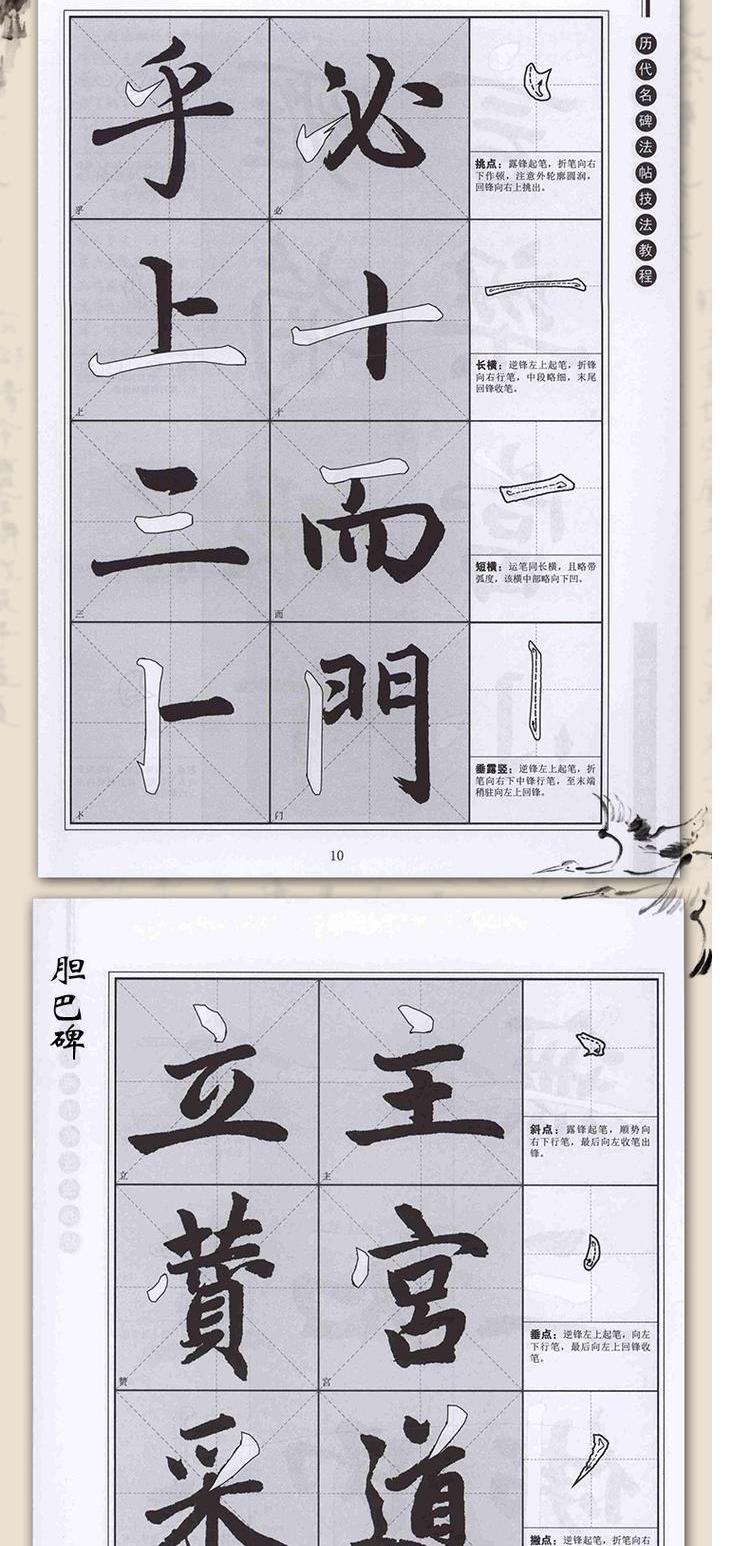 历代名碑法帖技法教程
必
必
乎
乎
挑点：露锋起笔，折笔向右
下作顿，注意外轮廓圆润，
回锋向右上挑出。
十
十
上
上
长横：逆锋左上起笔，折锋
向右行笔，中段略细，末尾
回锋收笔。
而
而
三
三
短横：运笔同长横，且略带
弧度，该横中部略向下凹。
門
门
卜
卜
垂露竖：逆锋左上起笔，折
笔向右下中锋行笔，至末端
稍驻向左上回锋。
10
胆巴碑
主
主
立
立
斜点：露锋起笔，顺势向
右下行笔，最后向左收笔出
锋。
宫
宫
賛
赞
垂点：逆锋左上起笔，向左
下行笔，最后向左上回锋收
笔。
道
采
撇点：逆锋起笔，折笔向右